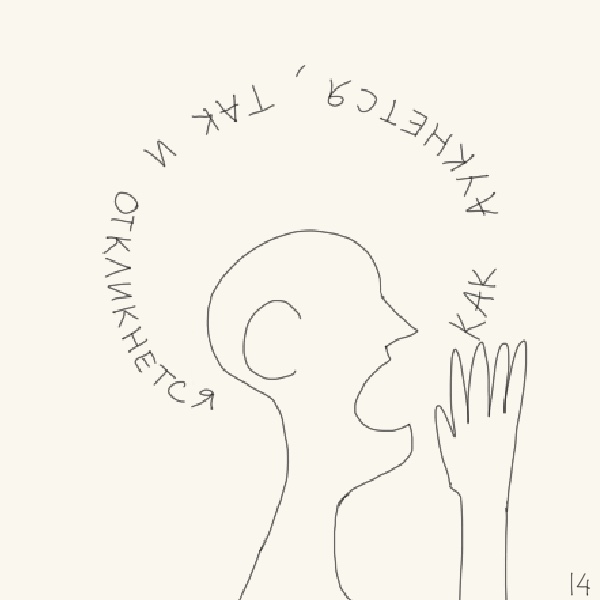 КАК АУКНЕТСЯ, ТАК И ОТКЛИКНЕТСЯ
14